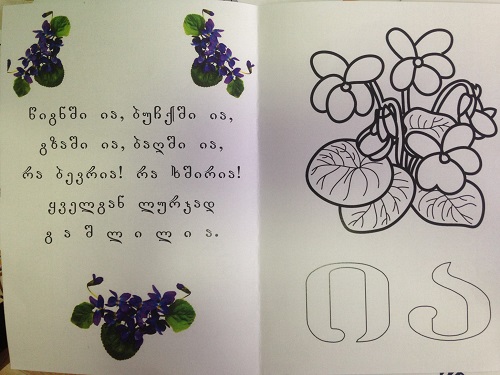 წიგნში ია, ბუჩქში ია,
გზაში ია, ბაღში ია,
რა ბევრია! რა ხშირია!
ყველგან ლურჯად
გ ა შ ლ ი ლ ი ა.
ია